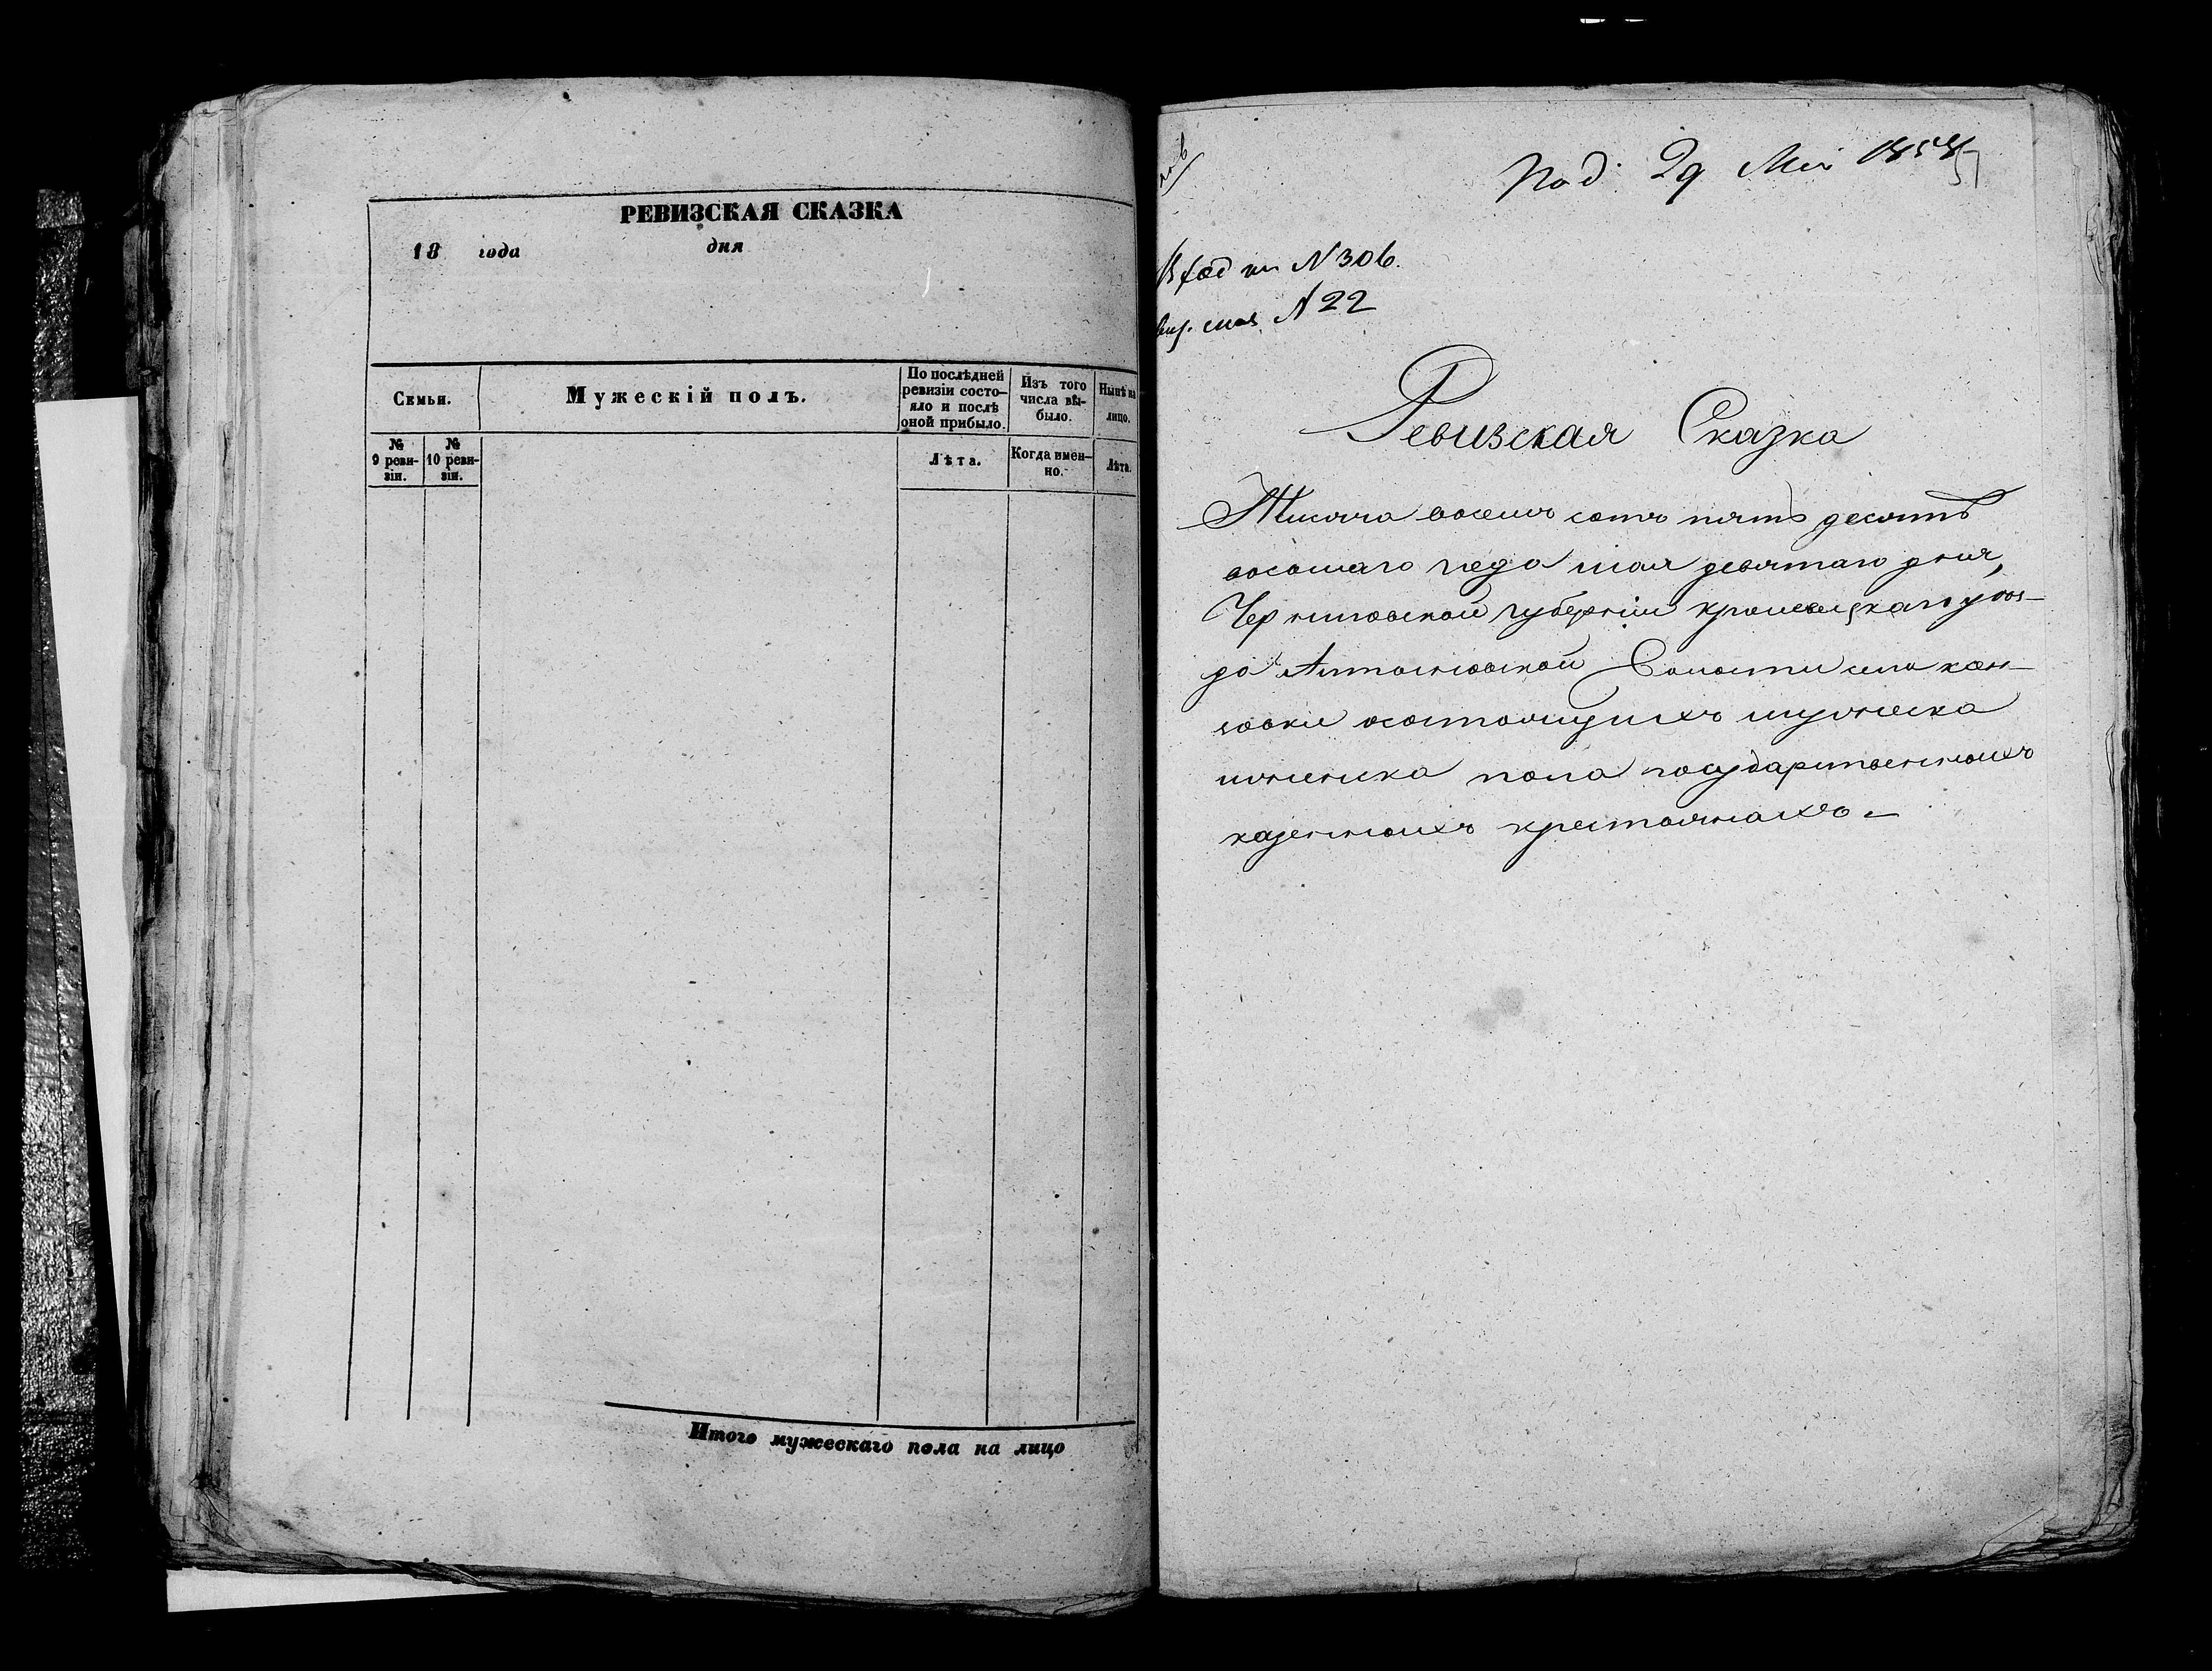 РЕВИЗСКАЯ СКАЗКА
18 года дня
Семьи.
Мужескій полъ.
По послѣдней
ревизіи состо-
яло и послѣ
оной прибыло.
Изъ того
числа вы-
было.
Нынѣ на
лицо.
№
9 реви-
зіи.
№
10 реви-
зіи.
Лѣта.
Когда имен-
но.
Лѣта.
Итого мужескаго пола на лицо
Под. 29 Мая 1858
57
N 306.
N 22
Ревизская Сказка
Тысяча восемъ сотъ пять десятъ
восьмаго года мая девятаго дня,
Черниговской губерніи кролевецкаго уѣз-
да Алтыновской Волости села
состоящихъ мужеска
иженска пола государственныхъ
казенныхъ крестьянахъ.